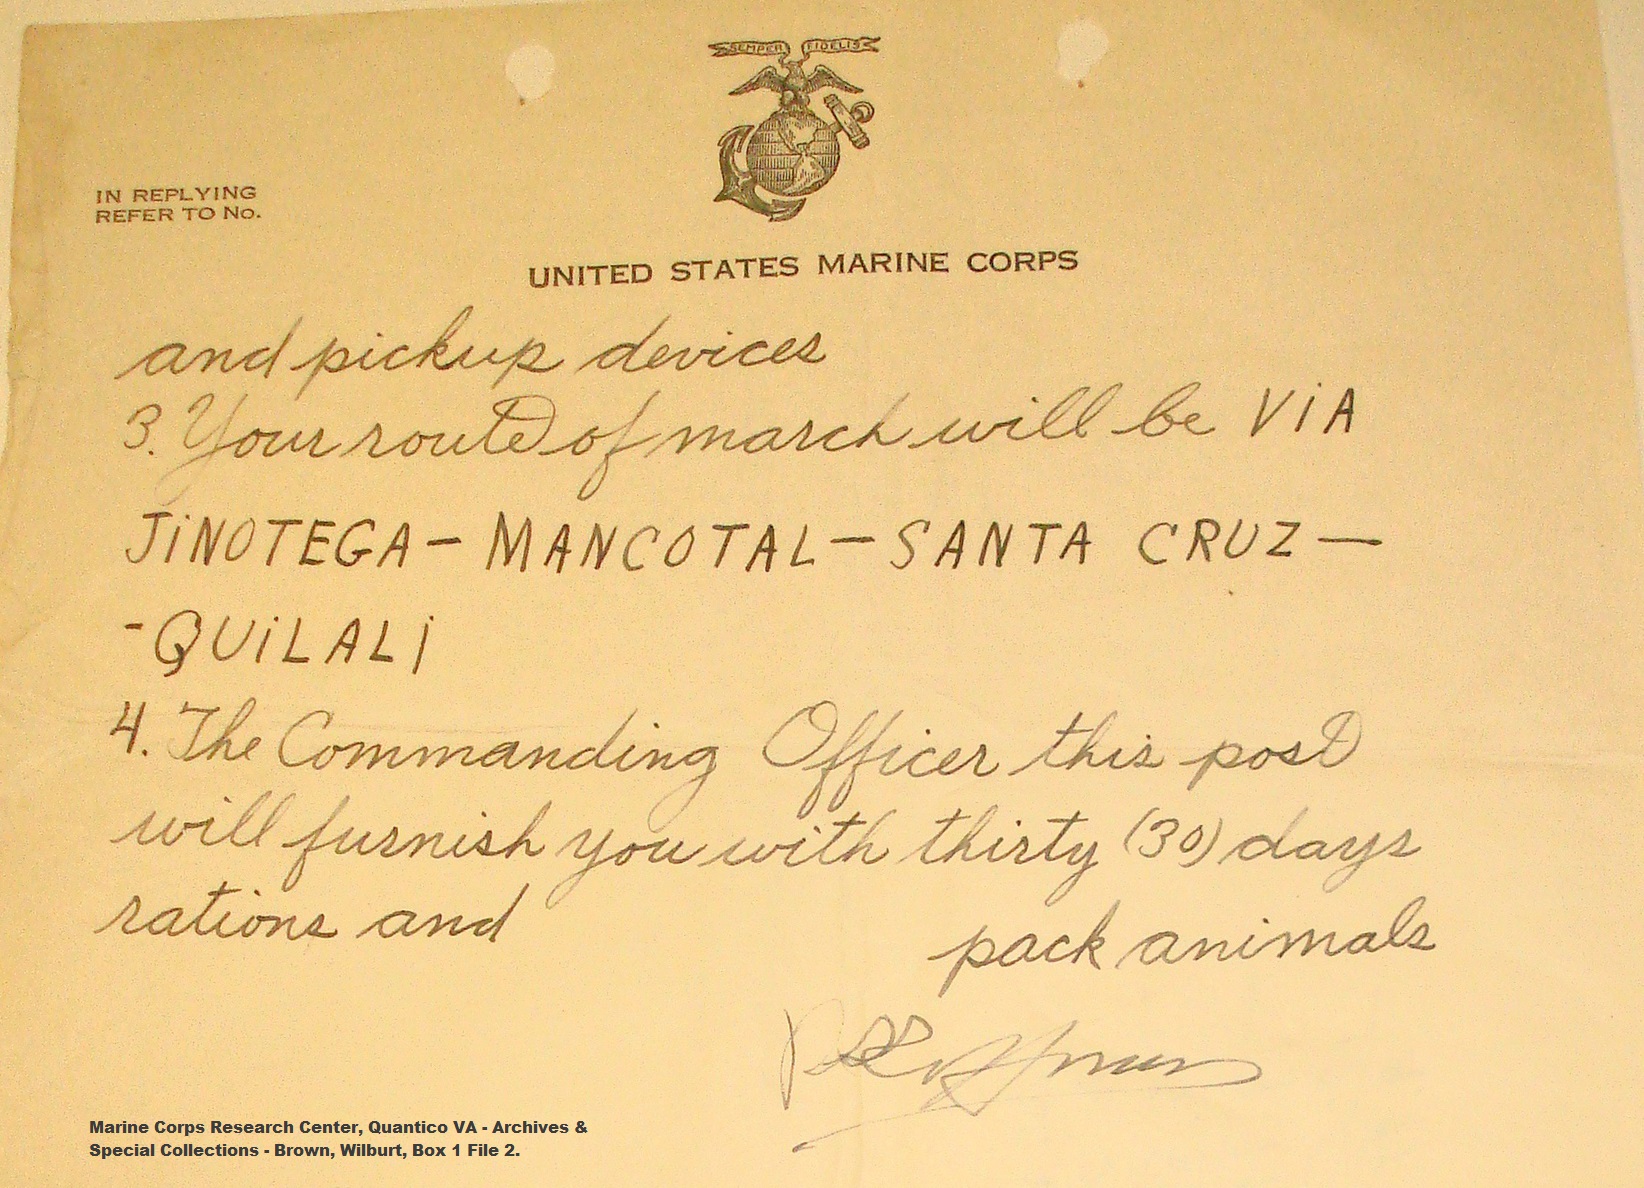 SEMPER FIDELIS
IN REPLYING
REFER TO No.
UNITED STATES MARINE CORPS
and pickup devices
3. Your route of march will be ViA
JiNOTEGA — MANCOTAL — SANTA CRUZ —
- QUiLALi
4. The Commanding Officer this post
will furnish you with thirty (30) days
rations and pack animals
Marine Corps Research Center, Quantico VA - Archives &
Special Collections - Brown, Wilburt, Box 1 File 2.